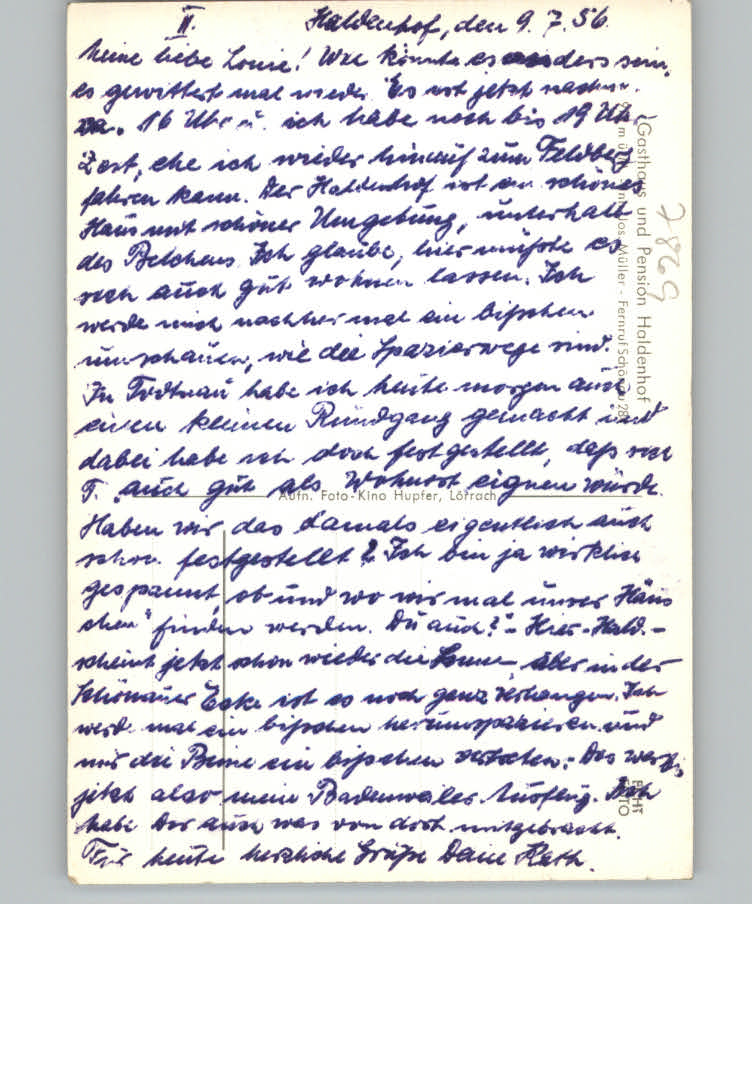 II. Haldenhof, den 9.7.56.
Meine liebe Louise! Wie könnte es anders sein,
es gewittert mal wieder. Es ist jetzt nachm.
ca. 16 Uhr u. ich habe noch bis 19 Uhr
Zeit, ehe ich wieder hinauf zum Feldberg
fahren kann. Der Haldenhof ist ein schönes
Haus mit schöner Umgebung, unterhalb
des Belchens. Ich glaube, hier müsste es
sich auch gut wohnen lassen. Ich
werde mich nachher mal ein bißchen
umschauen, wie die Spazierwege sind.
In Todtnau habe ich heute morgen auch
einen kleinen Rundgang gemacht und
dabei habe ich doch festgestellt, daß sich
T. auch gut als Wohnort eignen würde.
Haben wir das damals eigentlich auch
schon festgestellt? Ich bin ja wirklich
gespannt, ob und wo wir mal unser Häus
chen" finden werden. Du auch? - Hier - Hald. -
scheint jetzt schon wieder die Sonne, aber in der
Schönauer Ecke ist es noch ganz verhangen. Ich
werde mal ein bißchen herumspazieren und
mir die Beine ein bißchen vertreten. - Das war
jetzt also mein Badenweiler Ausflug. Ich
habe Dir auch was von dort mitgebracht.
Für heute herzliche Grüße Deine Käth.
Gasthaus und Pension Haldenhof
Jos. Müller - Fernruf Schönau 28
7869
Aufn. Foto-Kino Hupfer, Lörrach
ECHT
FOTO